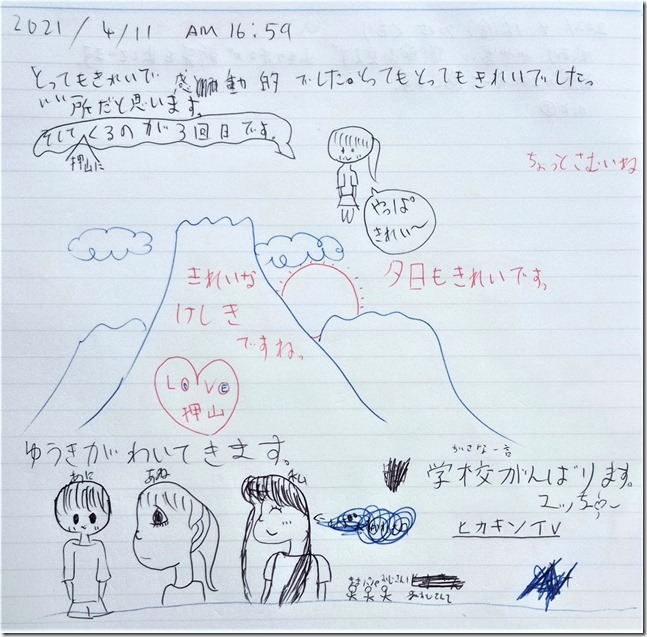 2021/4/11 AM 16:59
とってもきれいで 感動的 でした。とってもとってもきれいでしたっ
いい所だと思います。
そしてくるのが3回目です。
押山に
ちょっとさむいね
やっぱ
きれい〜
きれいな
けしき
ですね。
夕日もきれいです。
LOVE
押山
ゆうきがわいてきます。
わに
あね
私
学校がんばります。
ヒカキンTV